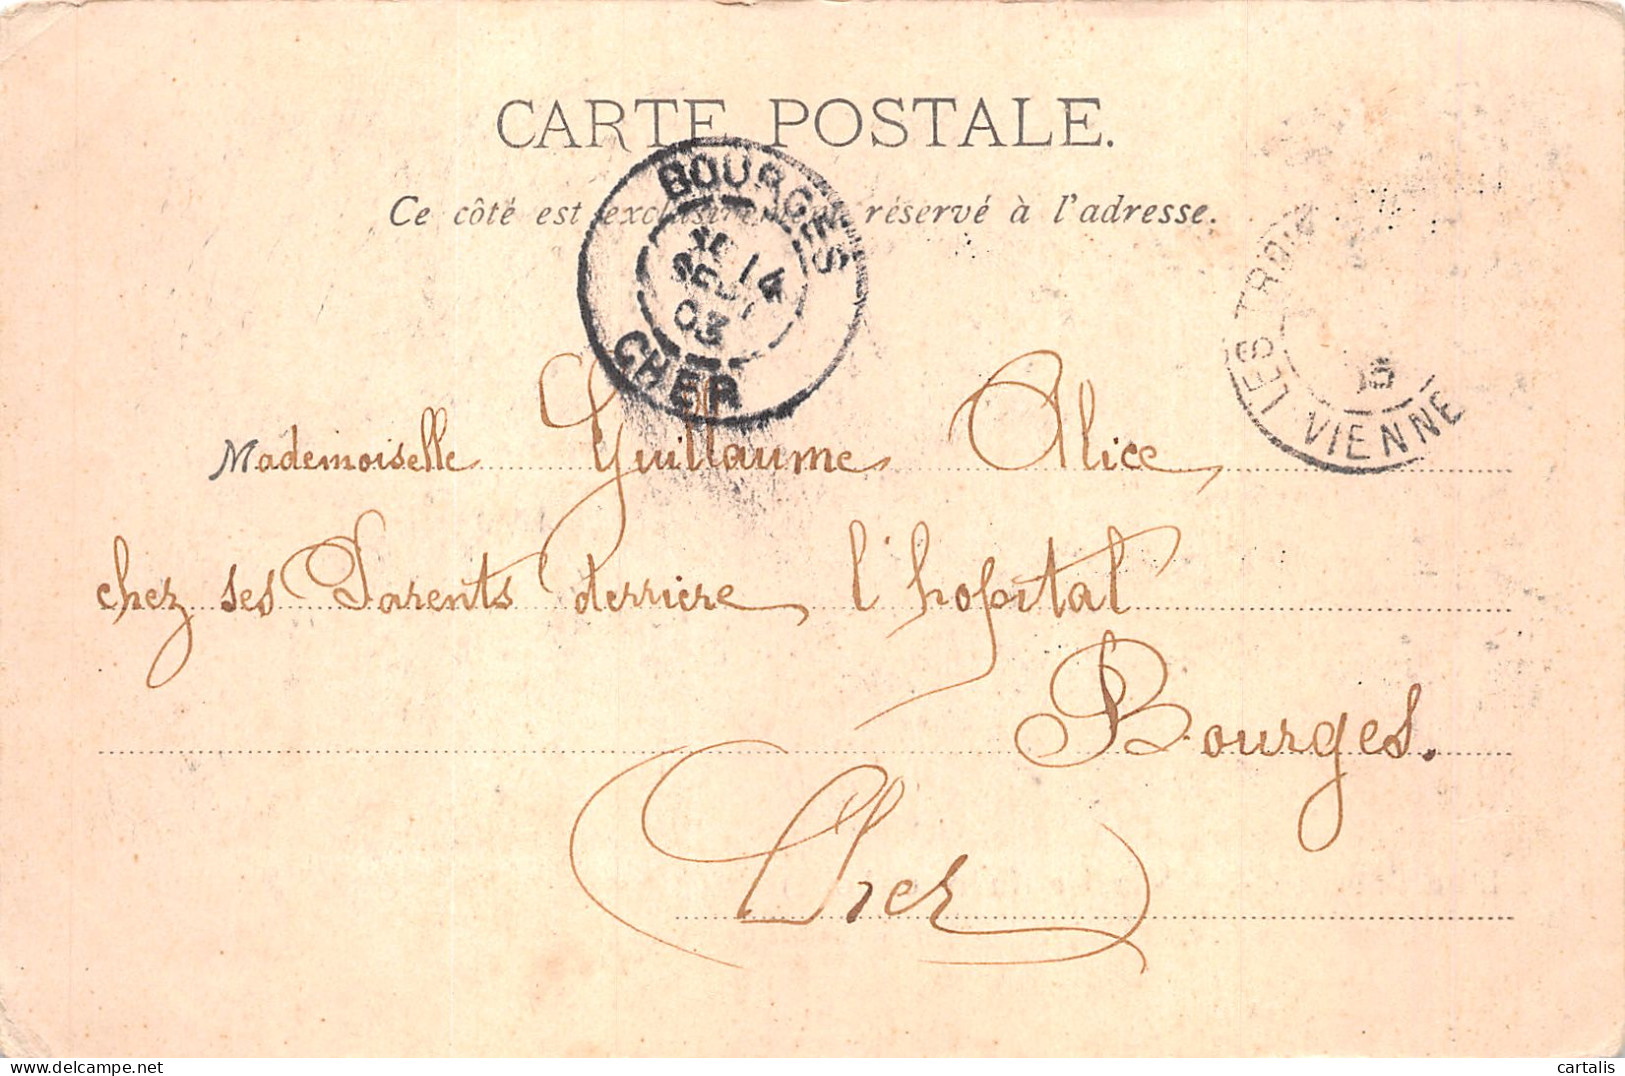 CARTE POSTALE.
Ce côté est exclusivement réservé à l'adresse.
BOURGES
14
03
CHER
LES TROIS
VIENNE
Mademoiselle Guillaume Alice
chez ses Parents derriere l'hopital
Bourges.
Cher
delcampe.net
cartalis